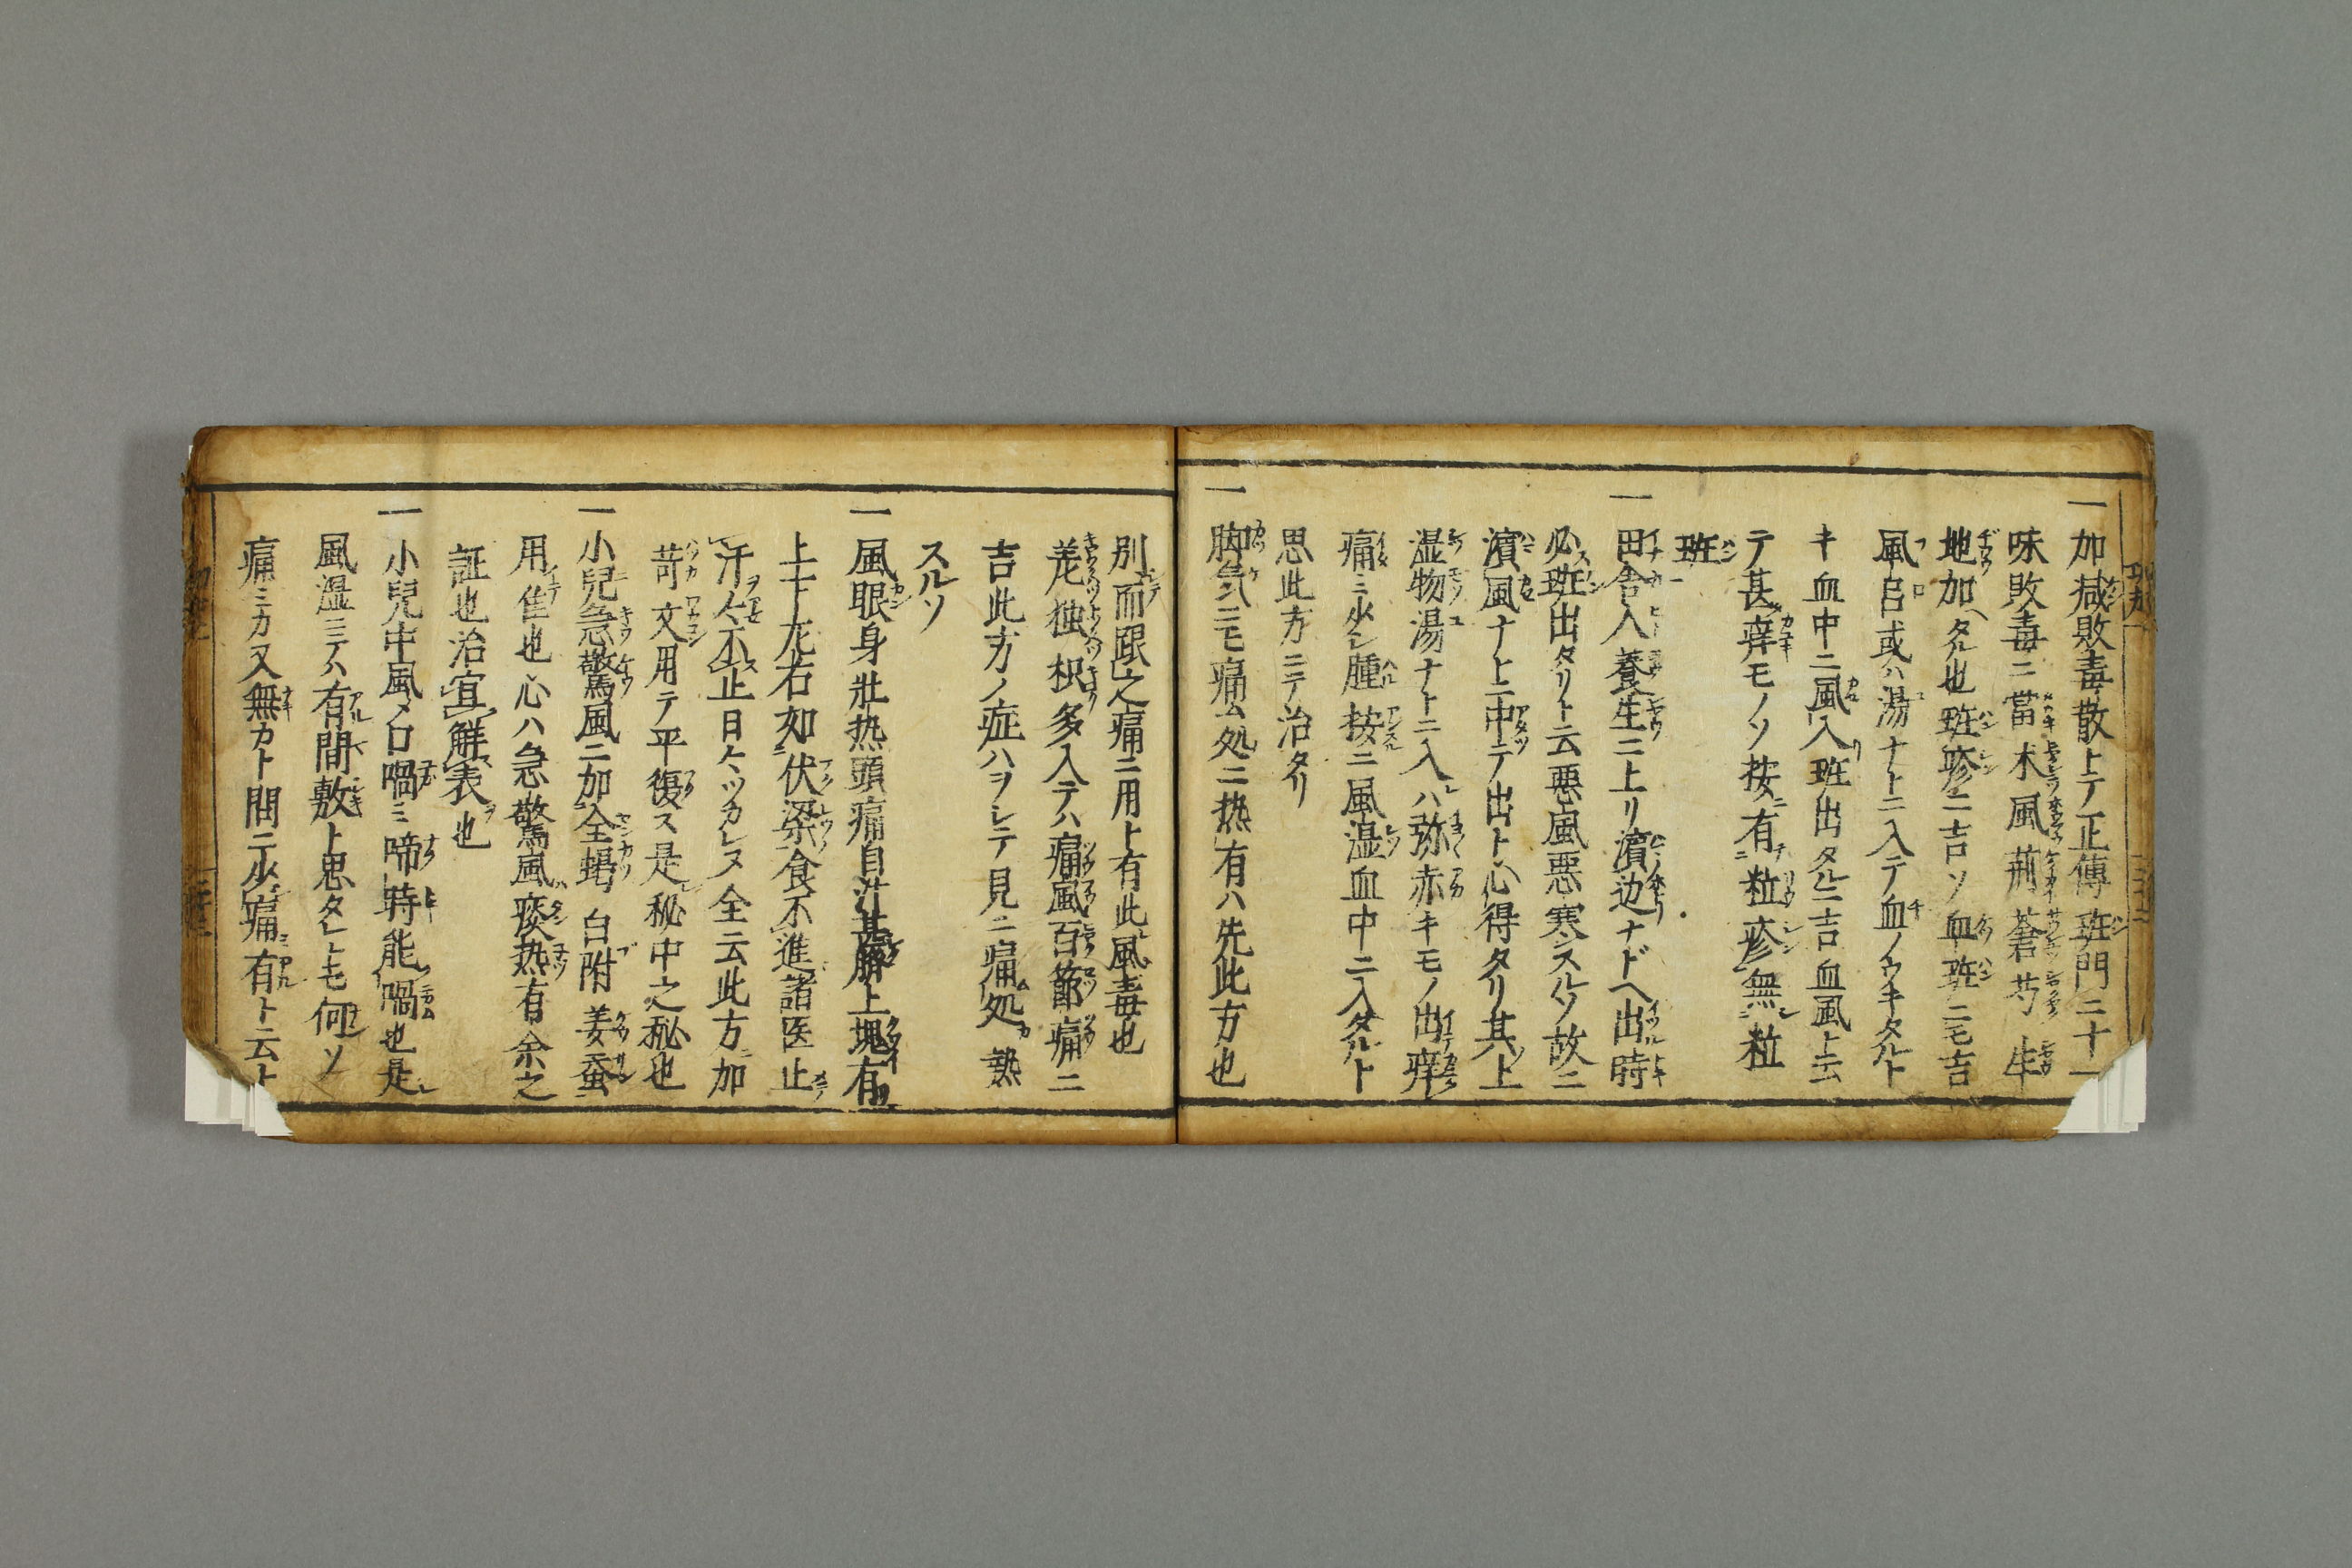 一加減敗毒散トテ正傳班門ニ十一
味敗毒ニ當木風荊蒼芍生
地加ヘタル也班疹ニ吉ソ血班ニモ吉
風呂或ハ湯ナトニ入テ血ノウキタルト
キ血中ニ風入班出タルニ吉血風ト云
テ甚痒モノソ按ニ有粒疹無粒
班
一田舎人養生ニ上リ濱辺ナドヘ出時
必班出タリト云悪風悪寒スルソ故ニ
濱風ナトニ中テ出ト心得タリ其上
湿物湯ナトニ入ハ弥赤キモノ出痒
痛ミ少シ腫按ニ風湿血中ニ入タルト
思此方ニテ治タリ
一脚気ニモ痛ム処ニ热有ハ先此方也
別而踉之痛ニ用ト有此風毒也
羗独枳多入テハ痛風百節痛ニ
吉此方ノ症ハヲシテ見ニ痛処カ熱
スルソ
一風眼身壮热頭痛自汁甚臍上塊有
上下左右如伏梁食不進諸医止
汗仌不止日ケツカレヌ全云此方ニ加
苛文用テ平復ス是秘中之秘也
一小兒急驚風ニ加全蝎白附姜蚕
用隹也心ハ急驚風痰热有余之
証也治宜解表也
一小兒中風〆口喎ミ啼時能喎也是
風湿ニテハ有間敷ト思タレトモ何ソ
痛ミカ又無カト問ニ少痛有ト云ト